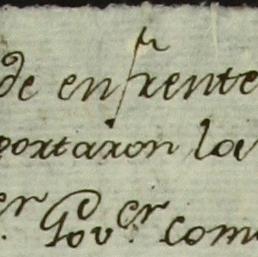 de enfrente
portaron la
er Gov.er com